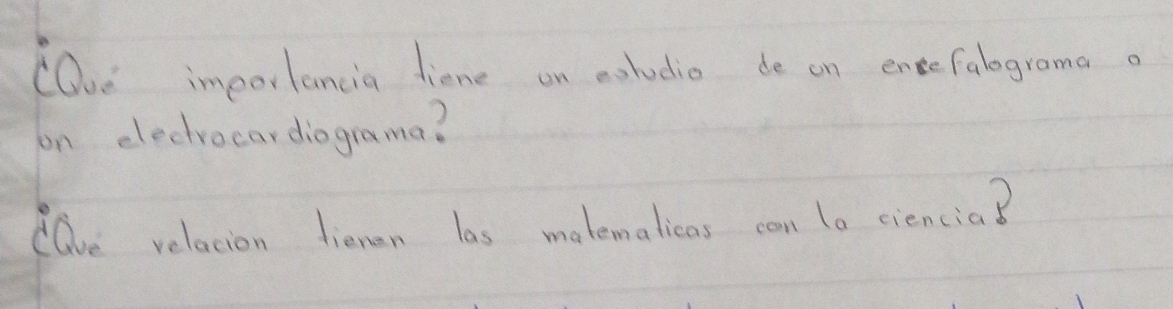 ¿Qué importancia tiene un estudio de un encefalograma o
un electrocardiograma?
¿Qué relacion tienen las matematicas con la ciencia?